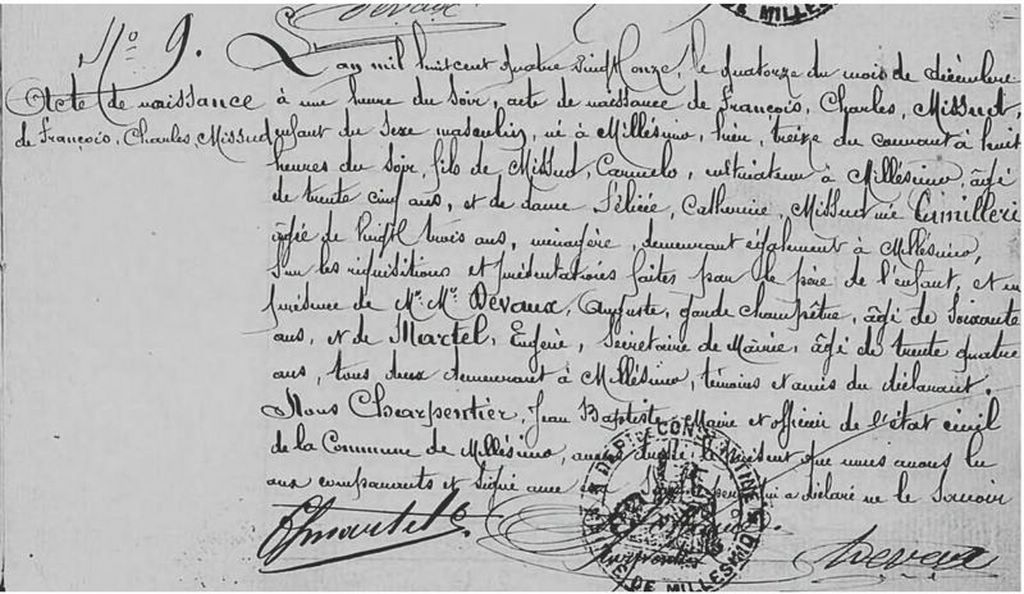 Devaux
DE MILLES
N° 9.
Acte de naissance
de François, Charles, Missud
L'an mil huit cent quatre vingt onze, le quatorze du mois de décembre
à une heure du soir, acte de naissance de François, Charles, Missud,
enfant du sexe masculin, né à Millésimo, hier, treize du courant à huit
heures du soir, fils de Missud, Carmelo, cultivateur à Millésimo, âgé
de trente cinq ans, et de dame Félicée, Catherine, Missud née Cunilleri
âgée de vingt trois ans, ménagère, demeurant également à Millésimo,
Sur les réquisitions et présentations faites par le père de l'enfant, et en
présence de M. M. Devaux, Auguste, garde champêtre, âgé de soixante
ans, et de Martel, Eugène, Secrétaire de Mairie, âgé de trente quatre
ans, tous deux demeurant à Millésimo, témoins et amis du déclarant.
Nous Charpentier, Jean Baptiste, Maire et officier de l'état civil
de la Commune de Millésimo, avons dressé le présent que nous avons lu
aux comparants et signé avec qui a déclaré ne le savoir
EMartel
Charpentier
Devaux
DE MILLESIMO